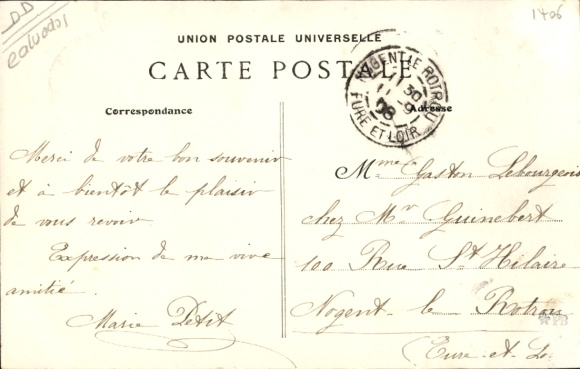 DD
Calvados
1406
UNION POSTALE UNIVERSELLE
CARTE POSTALE
NOGENT LE ROTROU
30
9
08
EURE ET LOIR
Correspondance
Adresse
Merci de votre bon souvenir
et à bientôt le plaisir
de vous revoir.
Expression de ma vive
amitié.
Marie Petit
Mme Gaston Lebourgeois
chez Mr Guinebert
100 Rue St Hilaire
Nogent-le Rotrou
(Eure-et-Lo